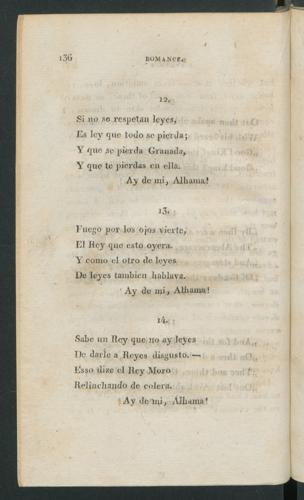 136 ROMANCE.
12.
Si no se respetan leyes,
Es ley que todo se pierda;
Y que se pierda Granada,
Y que te pierdas en ella.
Ay de mi, Alhama!
13.
Fuego por los ojos vierte,
El Rey que esto oyera.
Y como el otro de leyes
De leyes tambien hablava.
Ay de mi, Alhama!
14.
Sabe un Rey que no ay leyes
De darle a Reyes disgusto.—
Esso dize el Rey Moro
Relinchando de colera.
Ay de mi, Alhama!